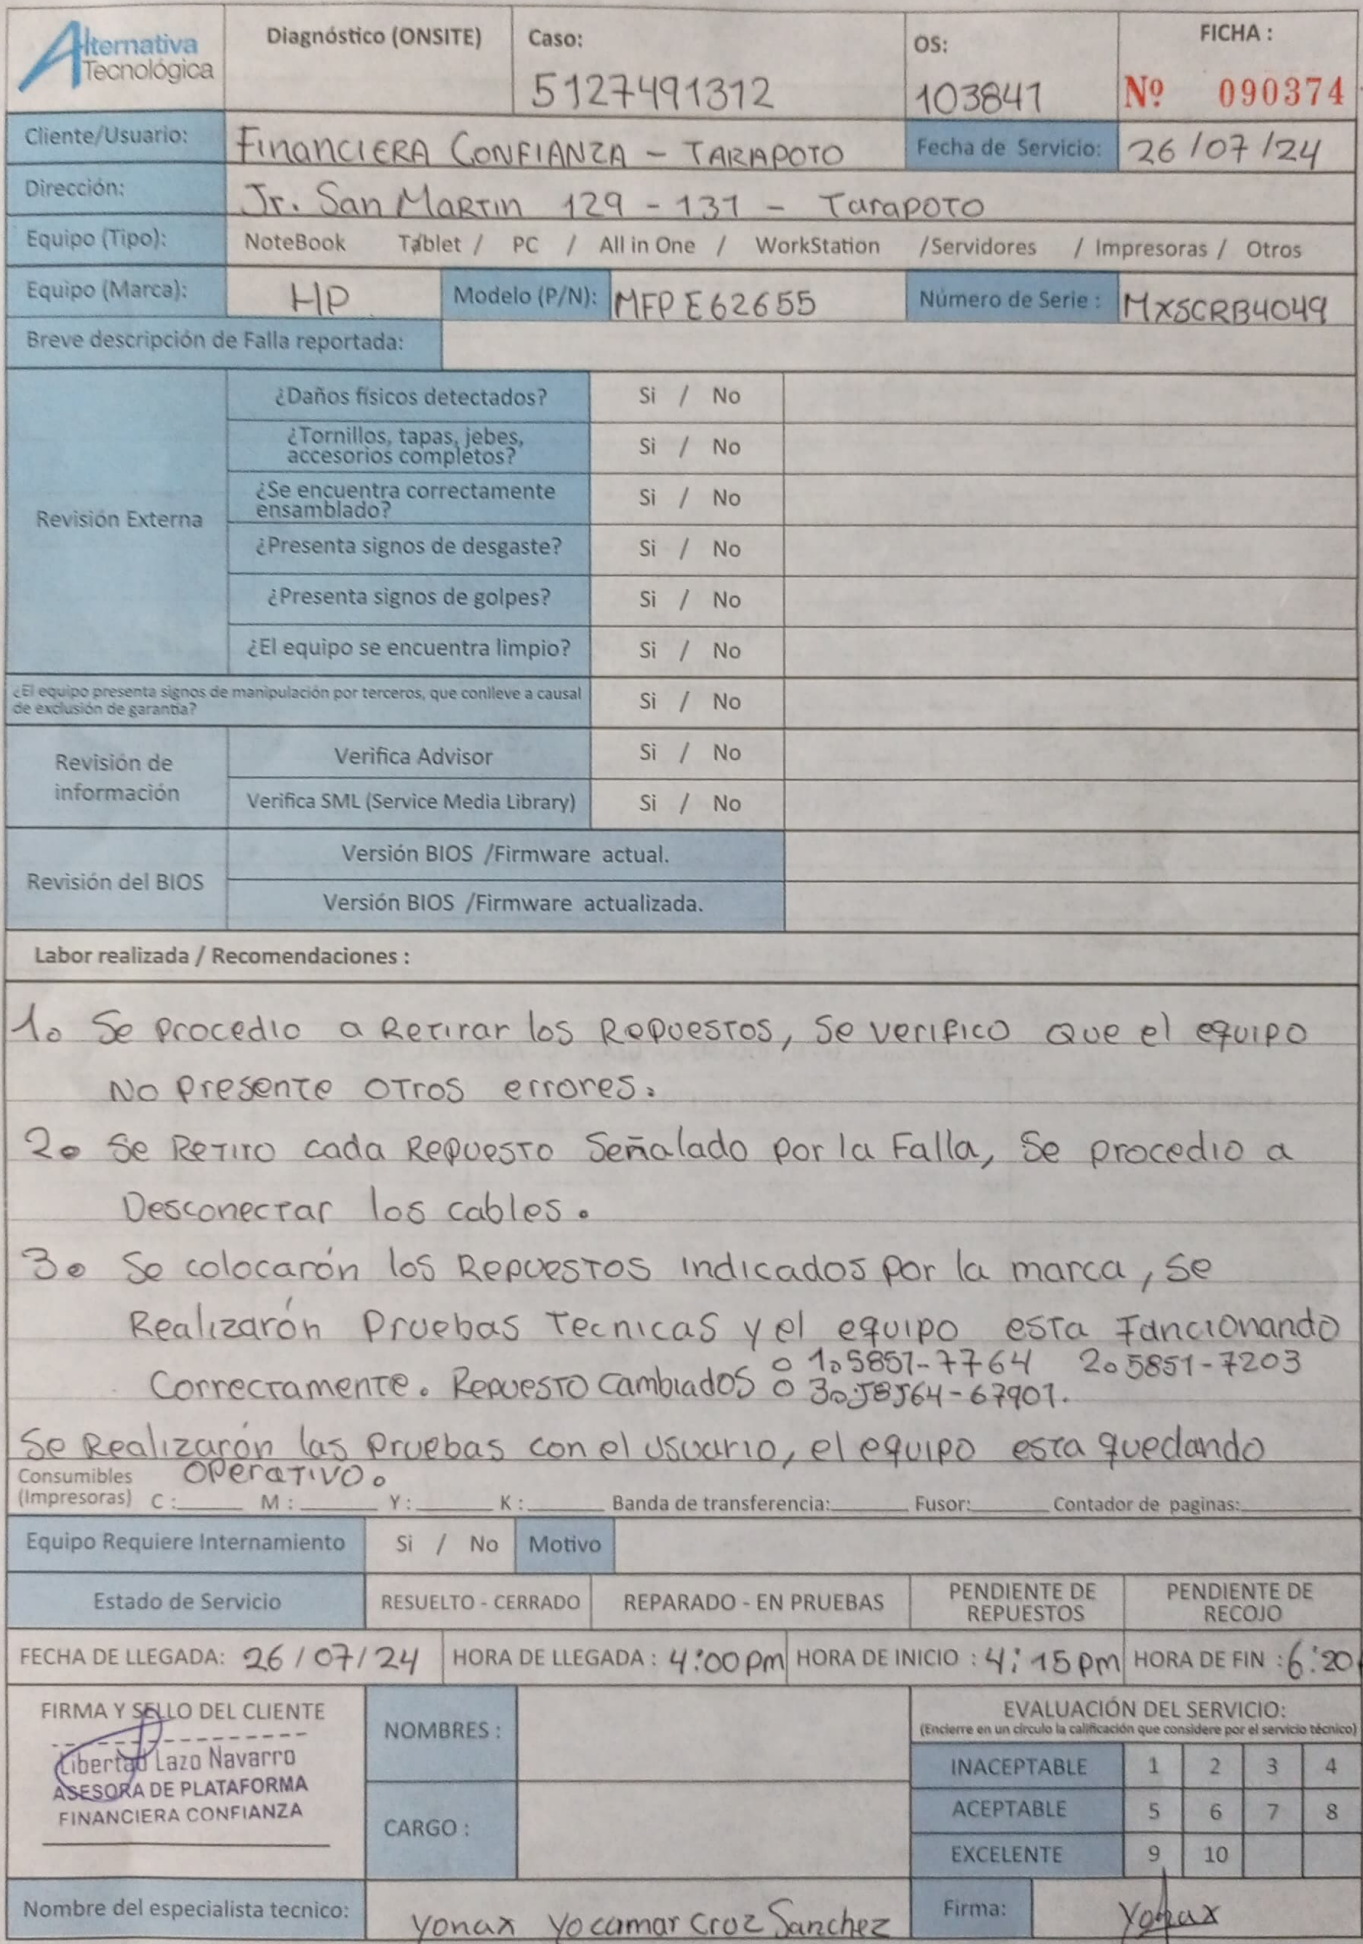 Alternativa Tecnológica
Diagnóstico (ONSITE)
Caso:
5127491312
OS:
103841
FICHA :
Nº 090374
Cliente/Usuario: FinanciERA CONFIANZA - TARAPOTO
Fecha de Servicio: 26/07/24
Dirección: Jr. San MaRTin 129 - 131 - TaraPOTO
Equipo (Tipo): NoteBook Tablet / PC / All in One / WorkStation /Servidores / Impresoras / Otros
Equipo (Marca): HP Modelo (P/N): MFP E62655 Número de Serie : MXSCRB4049
Breve descripción de Falla reportada:
Revisión Externa
¿Daños físicos detectados? Si / No
¿Tornillos, tapas, jebes,
accesorios completos? Si / No
¿Se encuentra correctamente
ensamblado? Si / No
¿Presenta signos de desgaste? Si / No
¿Presenta signos de golpes? Si / No
¿El equipo se encuentra limpio? Si / No
¿El equipo presenta signos de manipulación por terceros, que conlleve a causal
de exclusión de garantía? Si / No
Revisión de
información
Verifica Advisor Si / No
Verifica SML (Service Media Library) Si / No
Revisión del BIOS
Versión BIOS /Firmware actual.
Versión BIOS /Firmware actualizada.
Labor realizada / Recomendaciones :
1. Se procedio a Retirar los Repuestos, se verifico que el equipo
No presente otros errores.
2. Se Retiro cada Repuesto Señalado por la Falla, Se procedio a
Desconectar los cables.
3. Se colocarón los Repuestos indicados por la marca, se
Realizarón Pruebas Tecnicas y el equipo esta Funcionando
Correctamente. Repuesto cambiados : 1.5851-7764 2.5851-7203
3.J8J64-67901.
Se Realizarón las pruebas con el usuario, el equipo esta quedando
operativo.
Consumibles
(Impresoras) C : M : Y : K : Banda de transferencia: Fusor: Contador de paginas:
Equipo Requiere Internamiento Si / No Motivo
Estado de Servicio RESUELTO - CERRADO REPARADO - EN PRUEBAS PENDIENTE DE REPUESTOS PENDIENTE DE RECOJO
FECHA DE LLEGADA: 26/07/24 HORA DE LLEGADA : 4:00 pm HORA DE INICIO : 4:15 pm HORA DE FIN : 6:20
FIRMA Y SELLO DEL CLIENTE
Libertad Lazo Navarro
ASESORA DE PLATAFORMA
FINANCIERA CONFIANZA
NOMBRES :
CARGO :
EVALUACIÓN DEL SERVICIO:
(Encierre en un círculo la calificación que considere por el servicio técnico)
INACEPTABLE 1 2 3 4
ACEPTABLE 5 6 7 8
EXCELENTE 9 10
Nombre del especialista tecnico: Yonax Yocamar Cruz Sanchez
Firma: Yonax